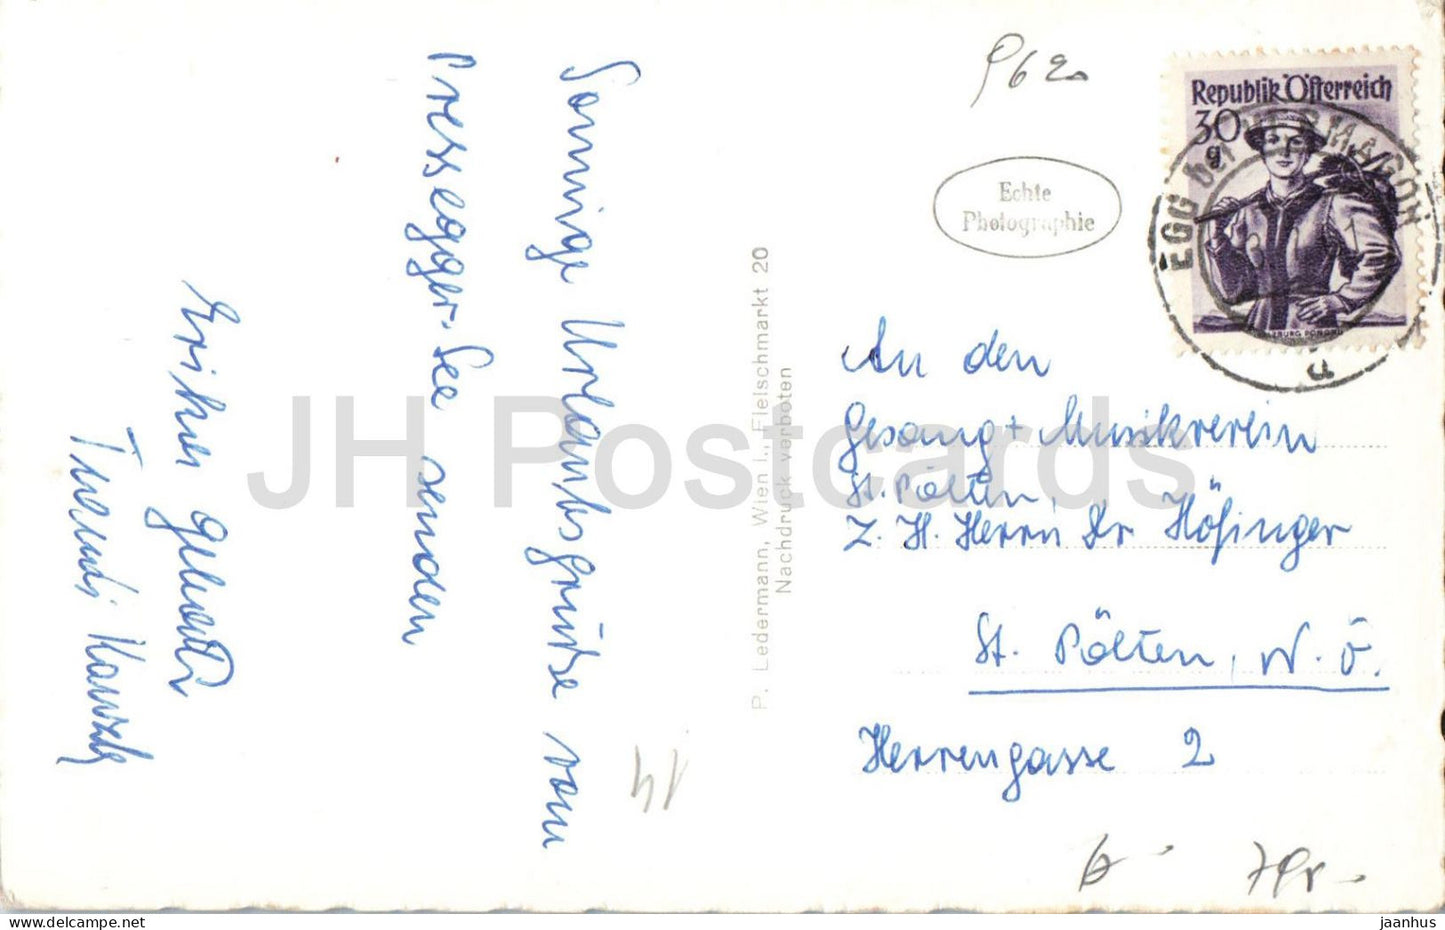 Sonnige Urlaubsgrüße vom
Pressegger-See senden
Trudi
P. Ledermann, Wien I., Fleischmarkt 20
Nachdruck verboten
Echte
Photographie
Republik Österreich
30
g
EGG bei HERMAGOR
a
An den
Gesang + Musikverein
St. Pölten,
Z. H. Herrn Dr Hösinger
St. Pölten, N.Ö.
Herrengasse 2
14
JH Postcards
www.delcampe.net
jaanhus